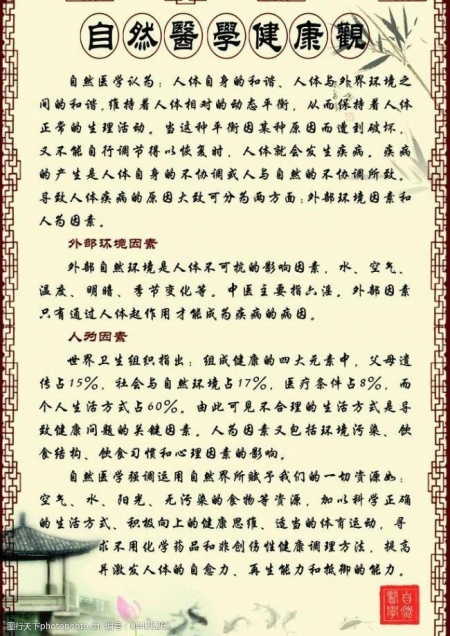 自然醫學健康觀
自然医学认为：人体自身的和谐、人体与外界环境之
间的和谐，维持着人体相对的动态平衡，从而保持着人体
正常的生理活动。当这种平衡因某种原因而遭到破坏，
又不能自行调节得以恢复时，人体就会发生疾病。疾病
的产生是人体自身的不协调或人与自然的不协调所致。
导致人体疾病的原因大致可分为两方面：外部环境因素和
人为因素。
外部环境因素
外部自然环境是人体不可抗的影响因素，水、空气、
温度、明暗、季节变化等。中医主要指六淫。外部因素
只有通过人体起作用才能成为疾病的病因。
人为因素
世界卫生组织指出：组成健康的四大元素中，父母遗
传占15%，社会与自然环境占17%，医疗条件占8%，而
个人生活方式占60%。由此可见不合理的生活方式是导
致健康问题的关键因素。人为因素又包括环境污染、饮
食结构、饮食习惯和心理因素的影响。
自然医学强调运用自然界所赋予我们的一切资源如：
空气、水、阳光、无污染的食物等资源，加以科学正确
的生活方式、积极向上的健康思维、适当的体育运动，寻
求不用化学药品和非创伤性健康调理方法，提高
并激发人体的自愈力、再生能力和抵御的能力。
自然
醫學